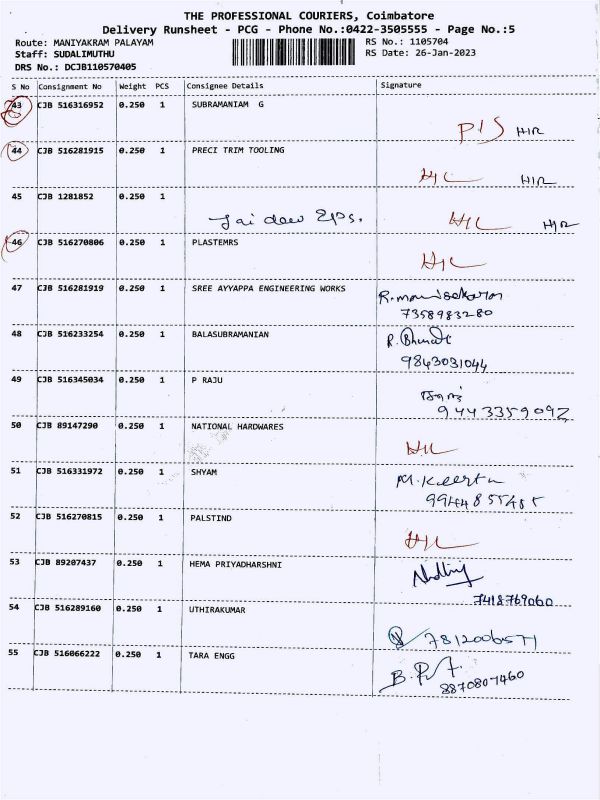 THE PROFESSIONAL COURIERS, Coimbatore
Delivery Runsheet - PCG - Phone No.:0422-3505555 - Page No.:5
Route: MANIYAKRAM PALAYAM RS No.: 1105704
Staff: SUDALIMUTHU RS Date: 26-Jan-2023
DRS No.: DCJB110570405
S No Consignment No Weight PCS Consignee Details Signature
43 CJB 516316952 0.250 1 SUBRAMANIAM G
PIS HIR
44 CJB 516281915 0.250 1 PRECI TRIM TOOLING
HIL HIR
45 CJB 1281852 0.250 1
Jai deev Eps. HIL HIR
46 CJB 516270806 0.250 1 PLASTEMRS
HIL
47 CJB 516281919 0.250 1 SREE AYYAPPA ENGINEERING WORKS
7358983280
48 CJB 516233254 0.250 1 BALASUBRAMANIAN
R. Bharat
9843031044
49 CJB 516345034 0.250 1 P RAJU
9443359092
50 CJB 89147290 0.250 1 NATIONAL HARDWARES
HIL
51 CJB 516331972 0.250 1 SHYAM
M. Keerta
9944855485
52 CJB 516270815 0.250 1 PALSTIND
HIL
53 CJB 89207437 0.250 1 HEMA PRIYADHARSHNI
7418769060
54 CJB 516289160 0.250 1 UTHIRAKUMAR
7812006571
55 CJB 516066222 0.250 1 TARA ENGG
8870807460